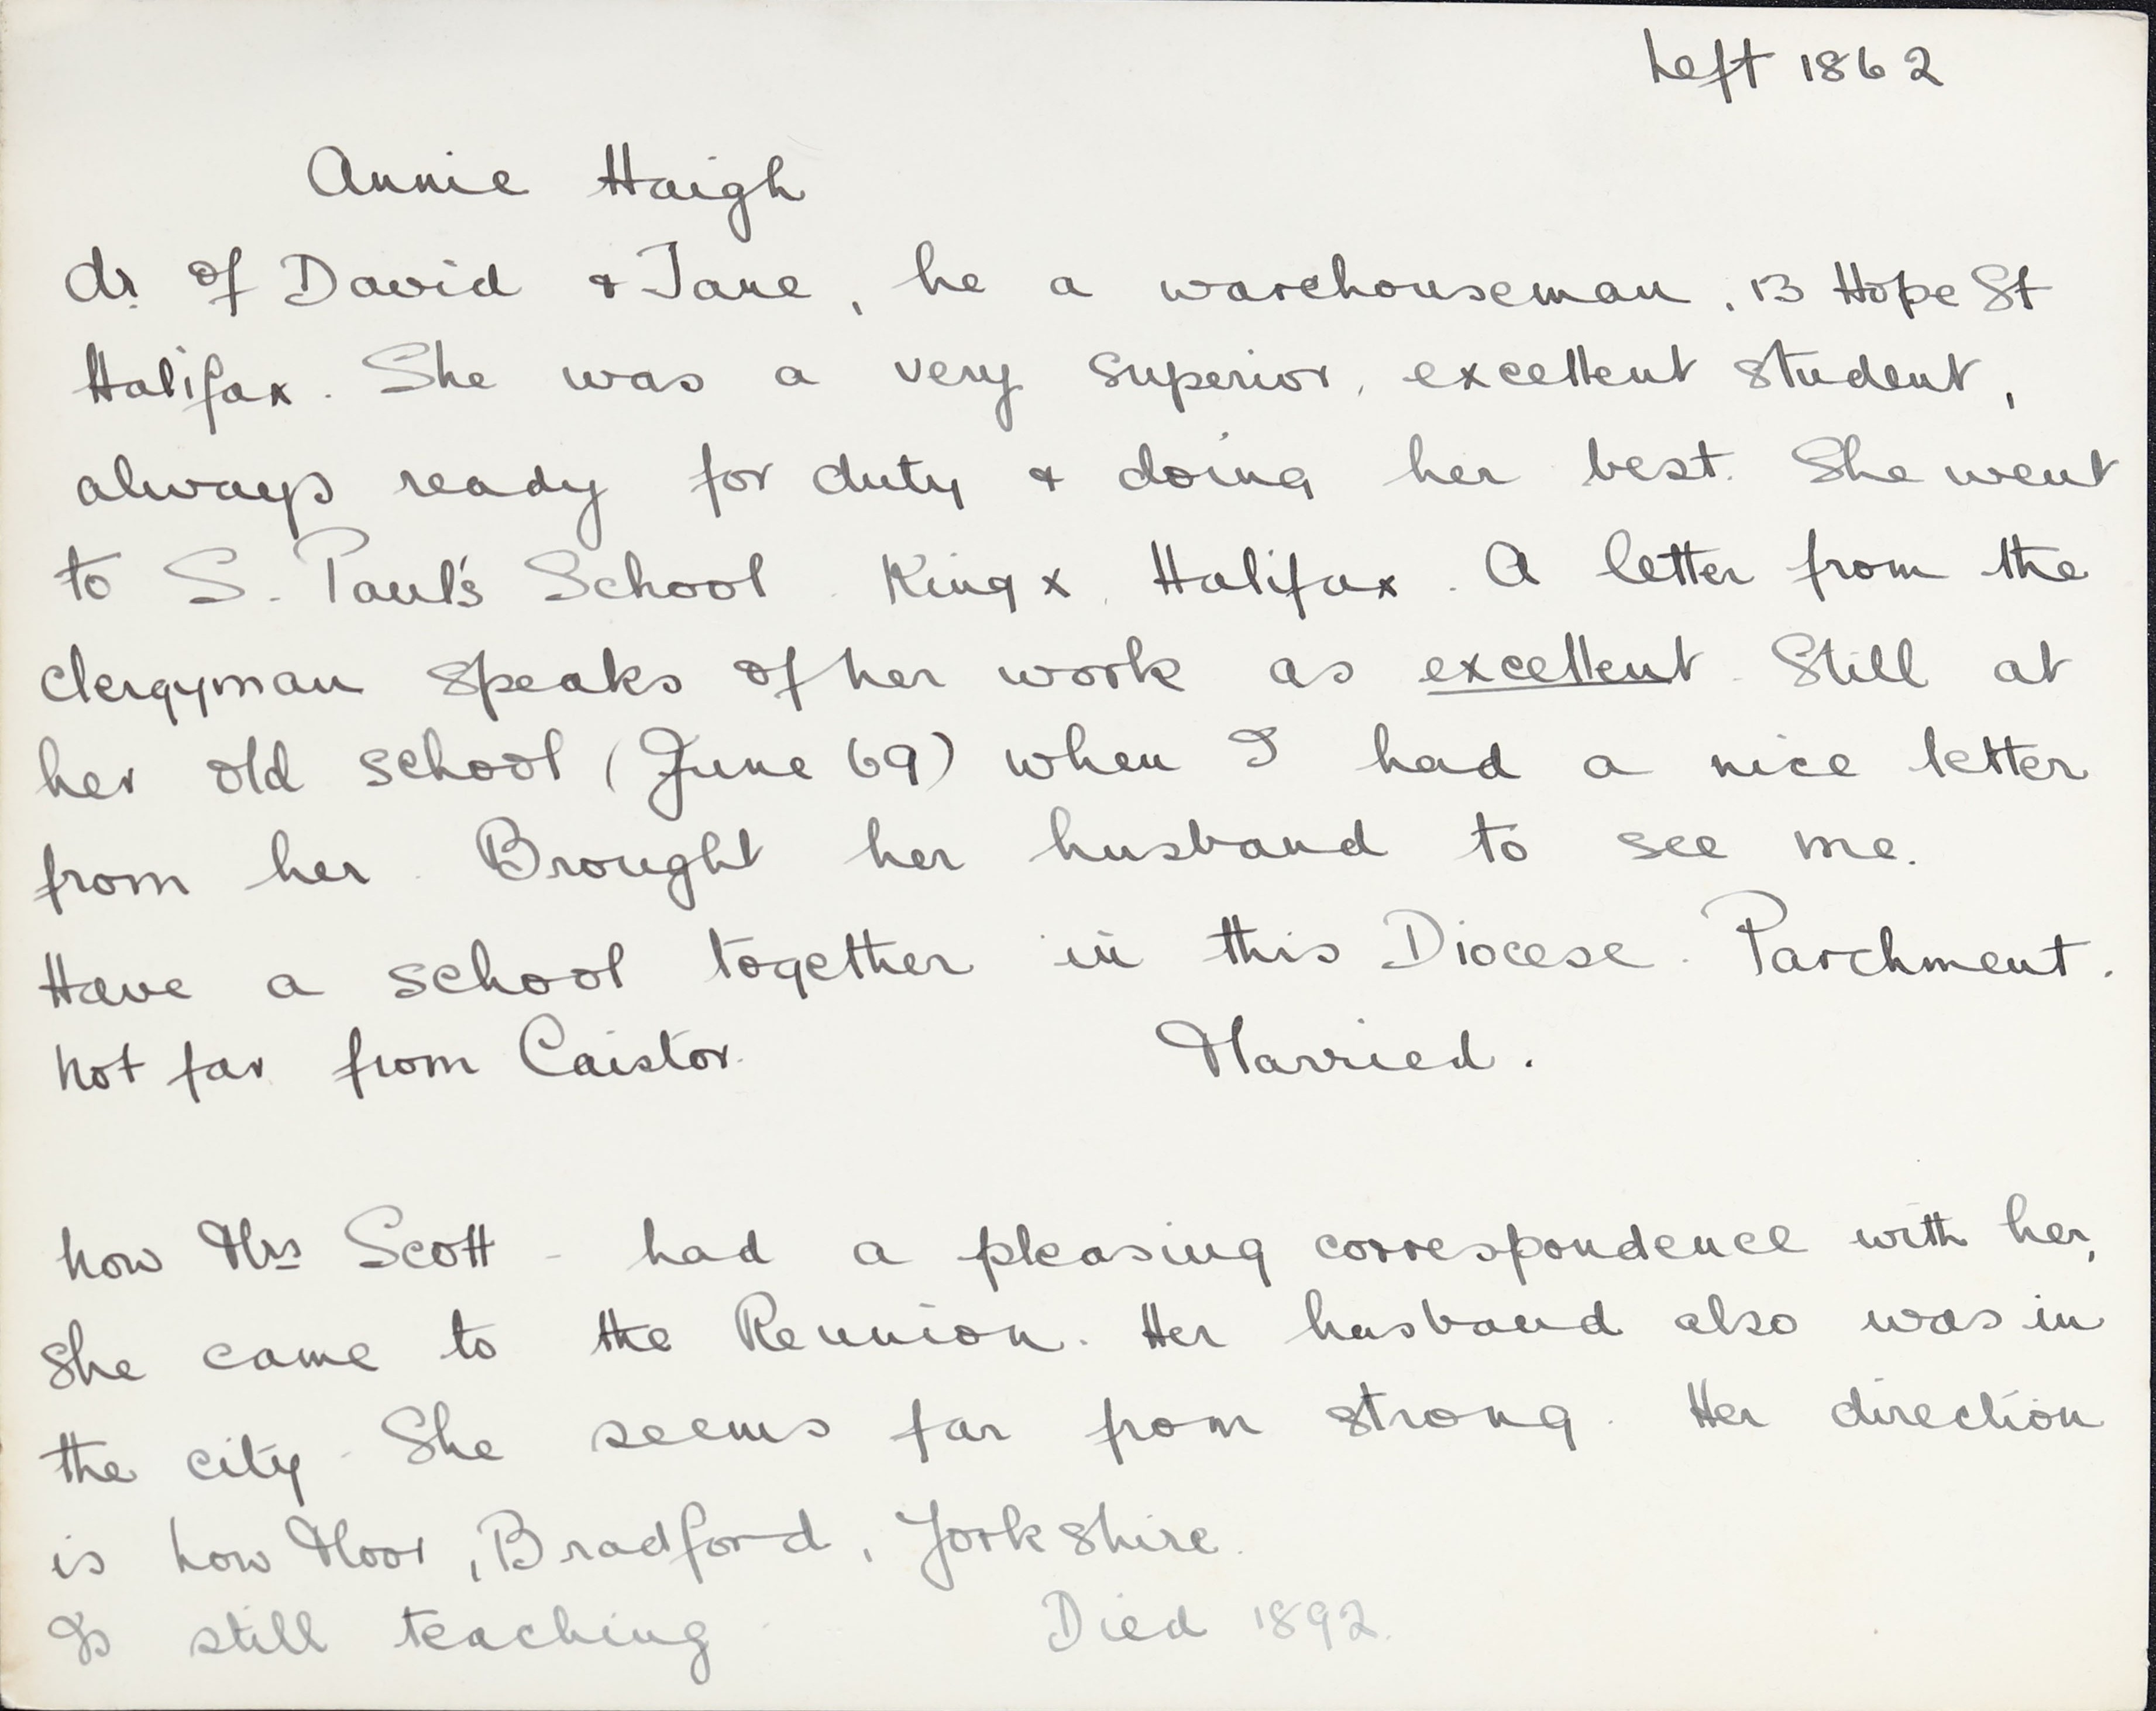 Left 1862
Annie Haigh
dr. of David & Jane, he a warehouseman, 13 Hope St
Halifax. She was a very superior, excellent student,
always ready for duty & doing her best. She went
to S. Paul's School King x, Halifax. A letter from the
clergyman speaks of her work as excellent. Still at
her old school (June 69) when I had a nice letter
from her. Brought her husband to see me.
Have a school together in this Diocese. Parchment.
Not far from Caistor. Married.
Now Mrs Scott - had a pleasing correspondence with her,
she came to the Reunion. Her husband also was in
the city. She seems far from strong. Her direction
is Low Moor, Bradford, Yorkshire.
Is still teaching Died 1892.